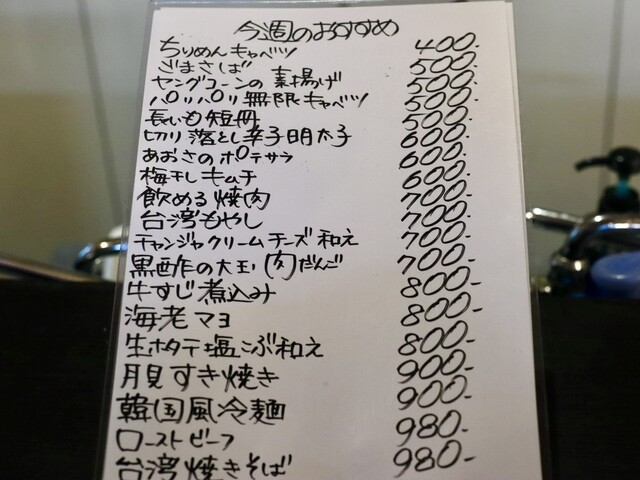 今週のおすすめ
ちりめんキャベツ 400-
ごまさば 500-
ヤングコーンの素揚げ 500-
パリパリ無限キャベツ 500-
長いも短冊 500-
切り落とし辛子明太子 600-
あおさのポテサラ 600-
梅干しキムチ 600-
飲める焼肉 700-
台湾もやし 700-
チャンジャクリームチーズ和え 700-
黒酢の大玉肉だんご 700-
牛すじ煮込み 800-
海老マヨ 800-
生ホタテ塩こぶ和え 800-
月見すき焼き 900-
韓国風冷麺 900-
ローストビーフ 980-
台湾焼きそば 980-